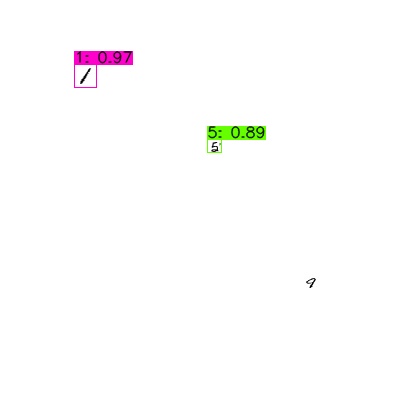 1: 0.97
1
5: 0.89
5